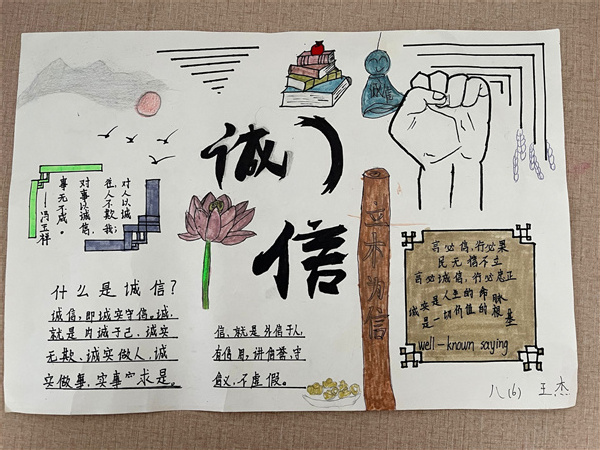 诚
信
对人以诚
人不欺我;
对事以诚信,
事无不成。
——冯玉祥
什么是诚信?
诚信,即诚实守信。诚,
就是内诚于己,诚实
无欺、诚实做人,诚
实做事,实事求是。
信,就是外信于人,
有信用,讲信誉,守
信义,不虚假。
立木为信
言必信,行必果
民无信不立
言必诚信,行必忠正
诚实是人生的命脉
是一切价值的根基
well-known saying
八(6) 王杰